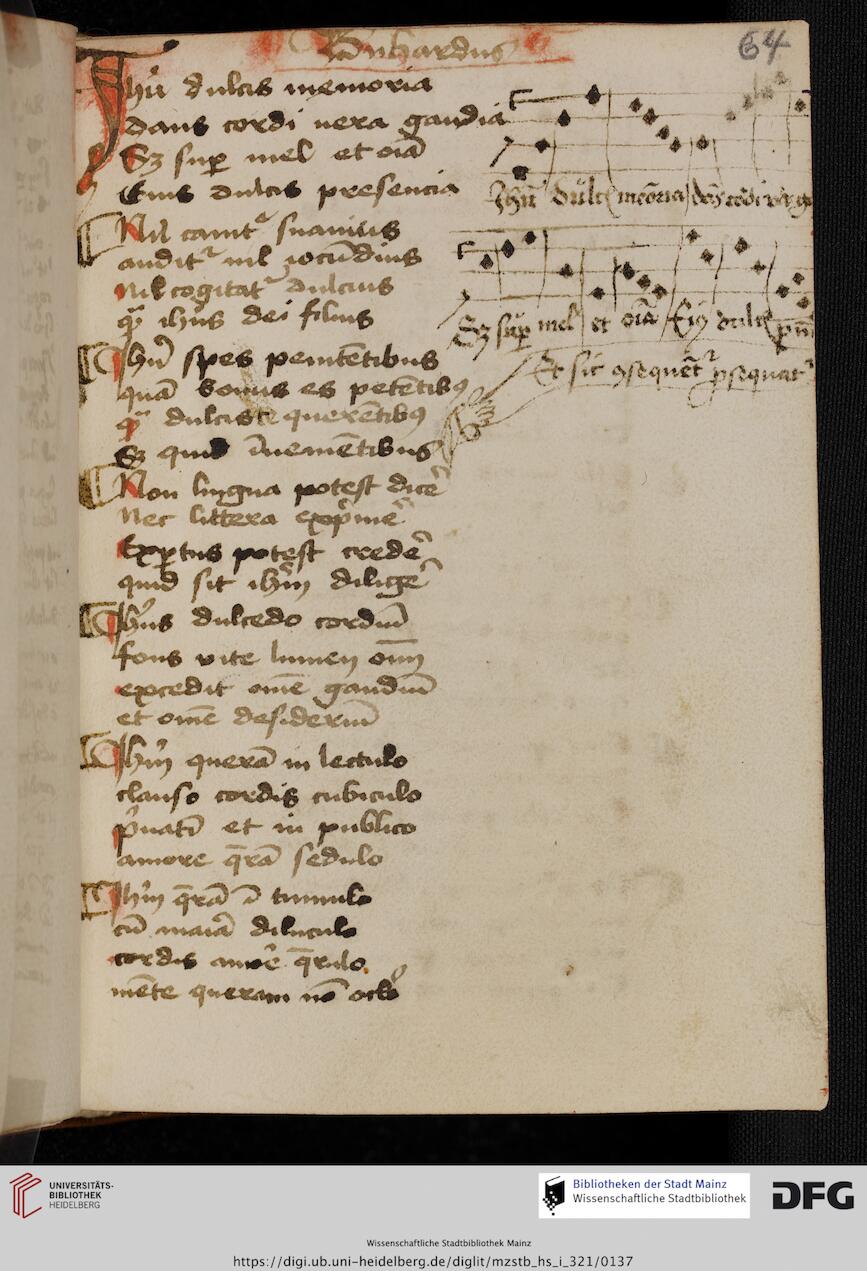 Bnhardus
64
Ihū dulcis memoria
dans cordi vera gaudia
Sz sup mel et oīa
Eius dulcis presencia
Nil canitᷣ suauius
auditᷣ nil iocūdius
nil cogitatᷣ dulcius
qᷓ ihūs dei filius
Ihū spes penitētibus
quā bonus es petētibꝰ
qᷓ dulcis te querētibꝰ
Sz quid īueniētibus
Non lingua potest dicē
nec littera exp̄mē
Expertus potest credē
quid sit ihm̄ diligē
Ihūs dulcedo cordiū
fons vite lumen oīm
excedit om̄e gaudiū
et om̄e desideriū
Ihm̄ querā in lectulo
clauso cordis cubiculo
p̄uatī et in publico
amore q̄rā sedulo
Ihm̄ q̄rā ī tumulo
cū maīa diluculo
cordis amōe q̄rulo
mēte queram nō oclō
Ihū dulc memoria dās cordi
Sz sup mel et oīa Eiꝰ dulc
Et sic ꝯsequētᷣ ꝓsequatᷣ
UNIVERSITÄTS-
BIBLIOTHEK
HEIDELBERG
Bibliotheken der Stadt Mainz
Wissenschaftliche Stadtbibliothek
DFG
Wissenschaftliche Stadtbibliothek Mainz
https://digi.ub.uni-heidelberg.de/diglit/mzstb_hs_i_321/0137